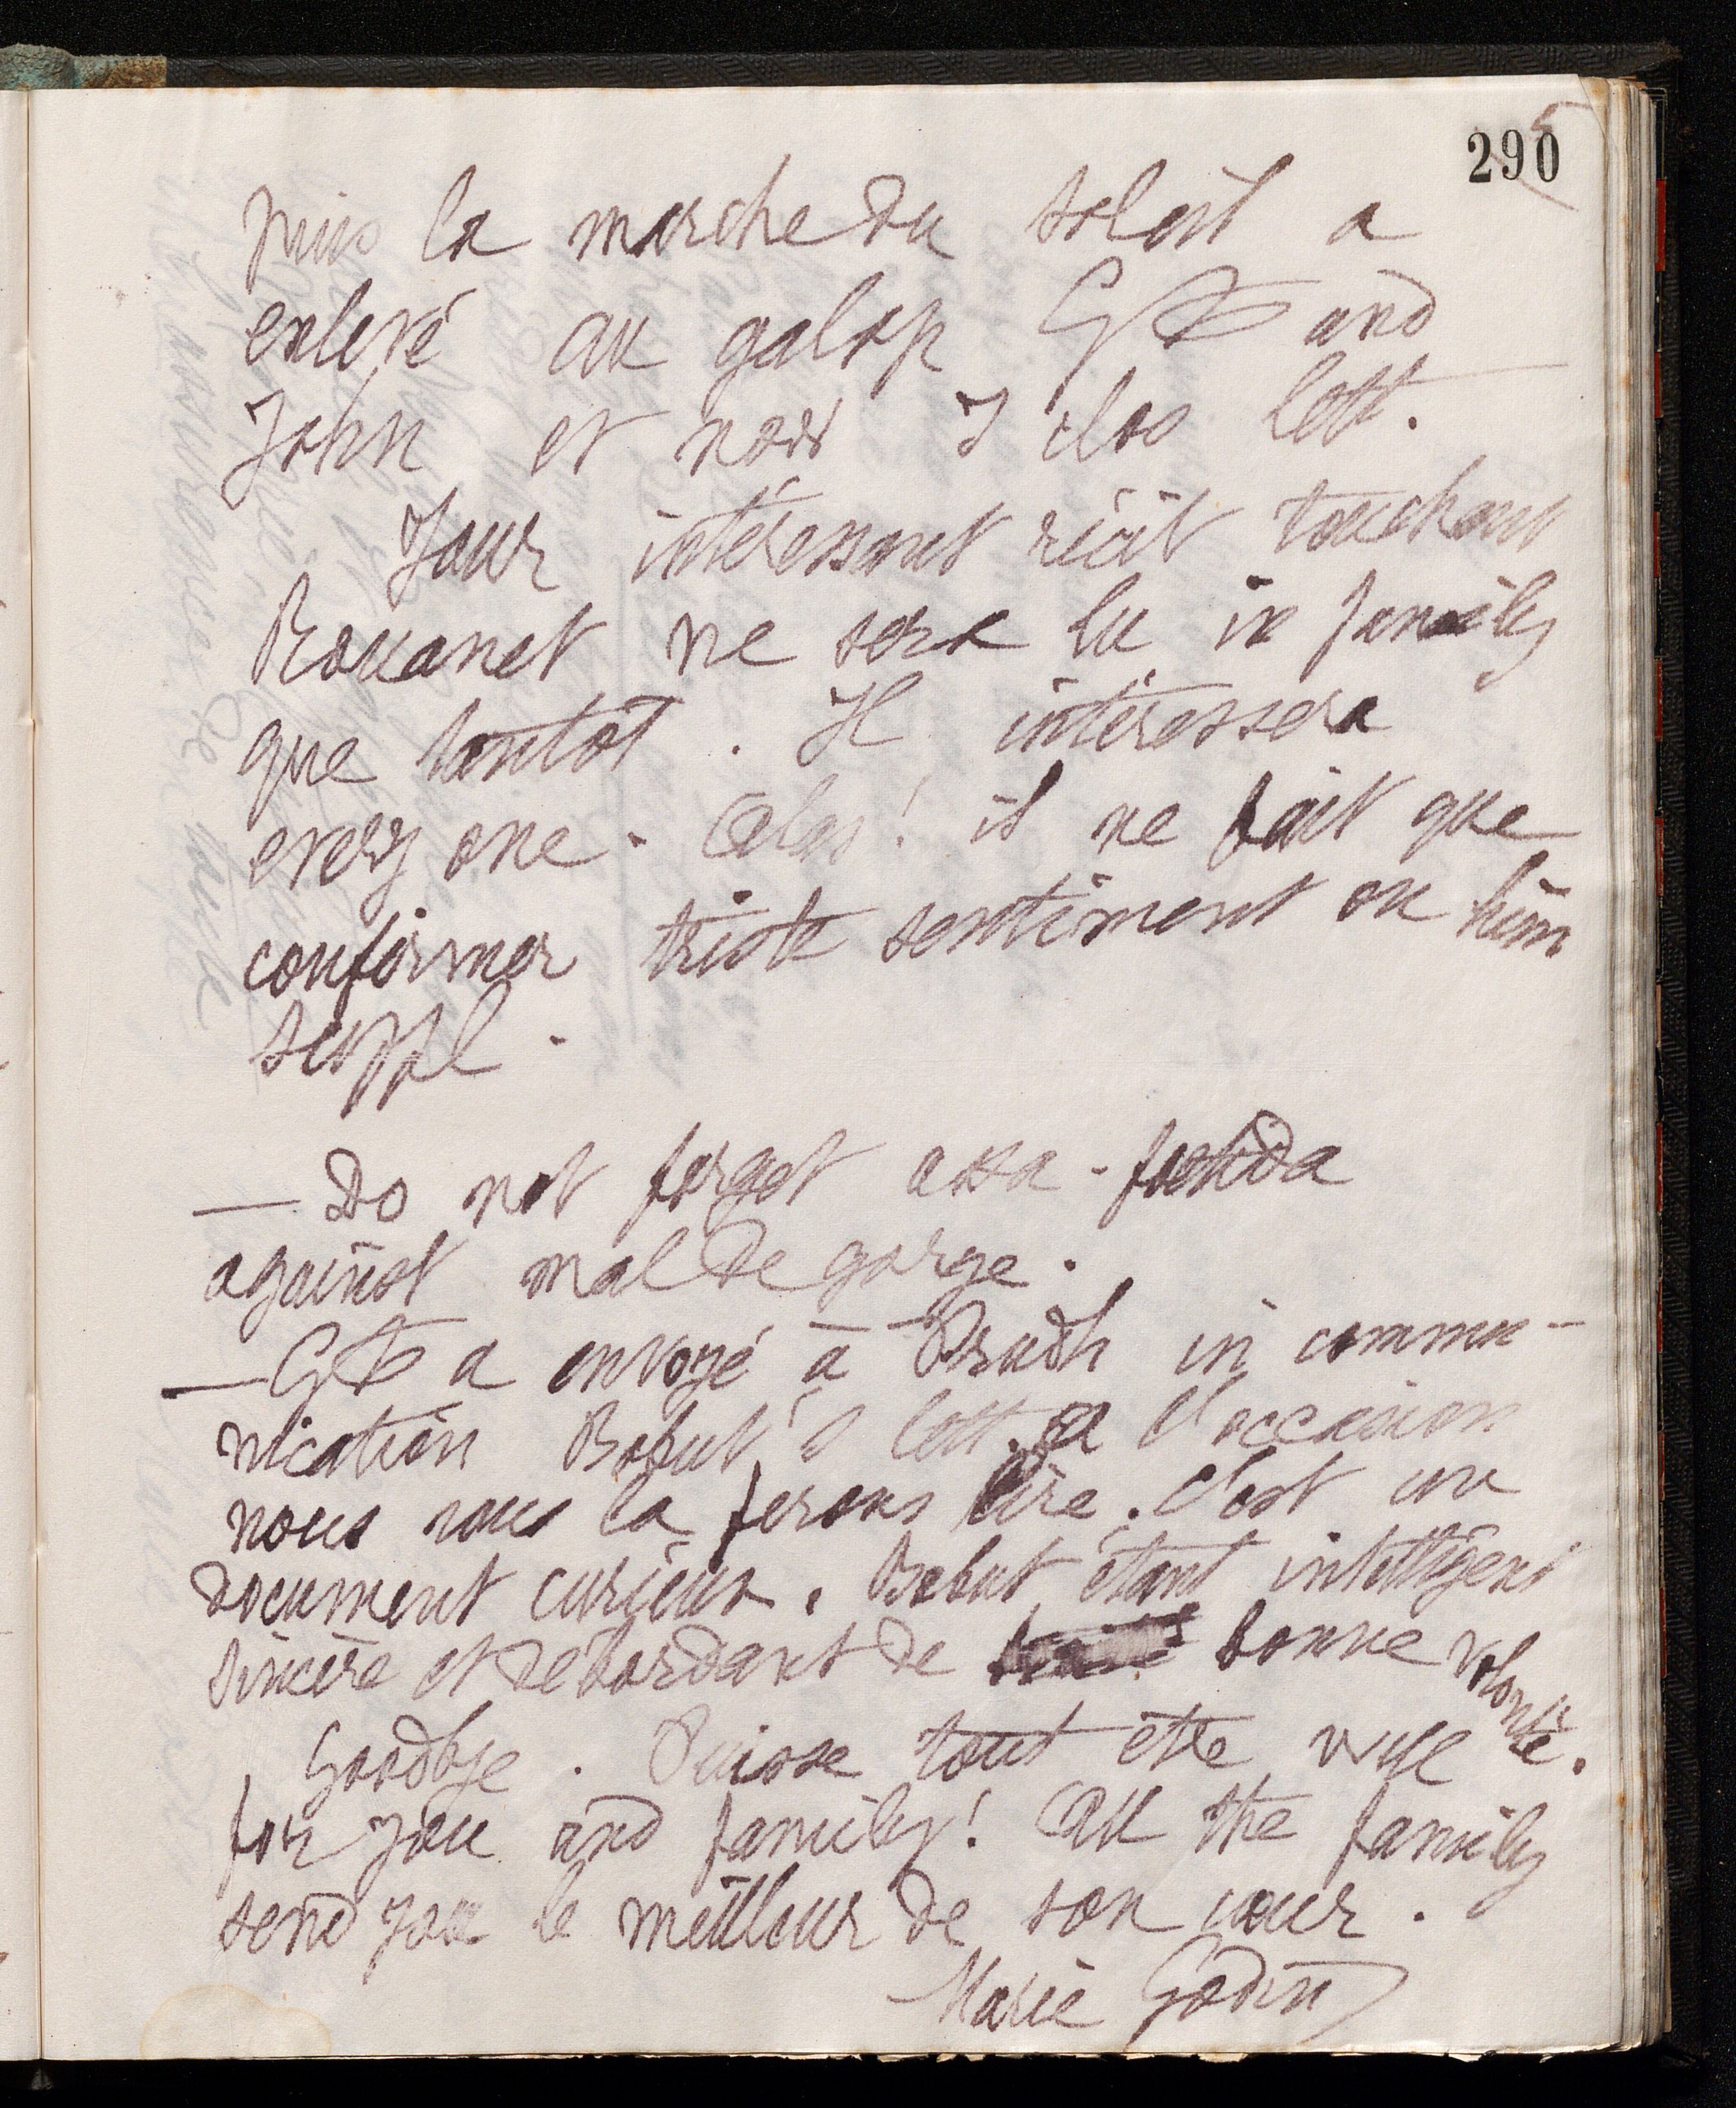 290
5
puis la marche du soleil a
enlevé au galop Gst and
John et now I clos lett.
Your intéressant récit touchant
Rouanet ne sera lu in family
que tantôt. Il intéressera
every one. Alas! il ne fait que
confirmer triste sentiment on him
suppl.
— Do not forget assa-foetida
against mal de gorge.
— Gst a envoyé à Prudh in commu-
nication Babut's lett. à l'occasion
nous vous la ferons lire. C'est un
document curieux. Babut étant intelligent
sincère et débordant de bonne volonté.
Goodbye. Puisse tout être well
for you and family! All the family
send you le meilleur de son cœur.
Marie Godin